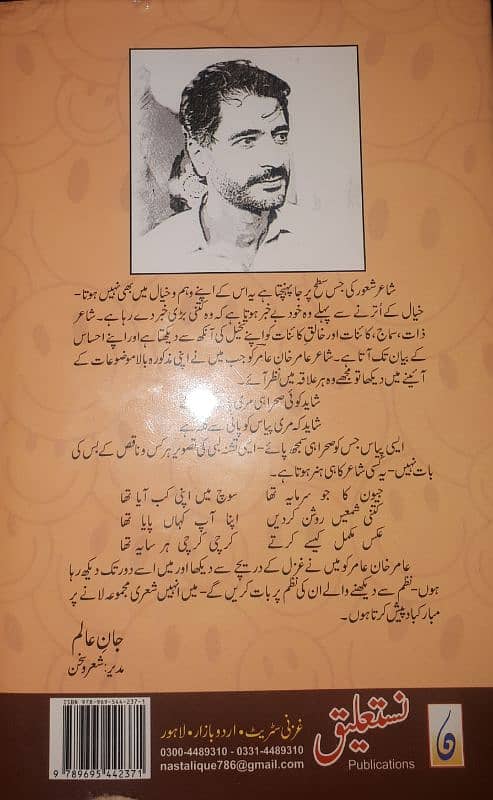 شاعر شعور کی جس سطح پر جا پہنچتا ہے یہ اس کے اپنے وہم و خیال میں بھی نہیں ہوتا۔
خیال کے اُترنے سے پہلے وہ خود بے خبر ہوتا ہے کہ وہ کتنی بڑی خبر دے رہا ہے۔ شاعر
ذات، سماج، کائنات اور خالقِ کائنات کو اپنے تخیل کی آنکھ سے دیکھتا ہے اور اپنے احساس
کے بیان تک آتا ہے۔ شاعر عامر خان عامر کو جب میں نے اپنی مذکورہ بالا موضوعات کے
آئینے میں دیکھا تو مجھے وہ ہر علاقہ میں نظر آئے۔
شاید کوئی صحرا ہی مری
شاید کہ مری پیاس کو پانی سے
ایسی پیاس جس کو صحرا ہی سمجھ پائے۔ ایسی تشنہ لبی کی تصویر ہر کس و ناقص کے بس کی
بات نہیں۔ یہ کسی شاعر کا ہی ہنر ہوتا ہے۔
جیون کا جو سرمایہ تھا سوچ میں اپنی کب آیا تھا
کتنی شمعیں روشن کر دیں اپنا آپ کہاں پایا تھا
عکس مکمل کیسے کرتے کرچی کرچی ہر سایہ تھا
عامر خان عامر کو میں نے غزل کے دریچے سے دیکھا اور میں اسے دور تک دیکھ رہا
ہوں۔ نظم سے دیکھنے والے ان کی نظم پر بات کریں گے۔ میں انہیں شعری مجموعہ لانے پر
مبارکباد پیش کرتا ہوں۔
جانِ عالم
مدیر: شعر و سخن
ISBN 978-969-544-237-1
9 789695 442371
غزنی سٹریٹ • اردو بازار • لاہور
0300-4489310 - 0331-4489310
nastalique786@gmail.com
نستعلیق
Publications